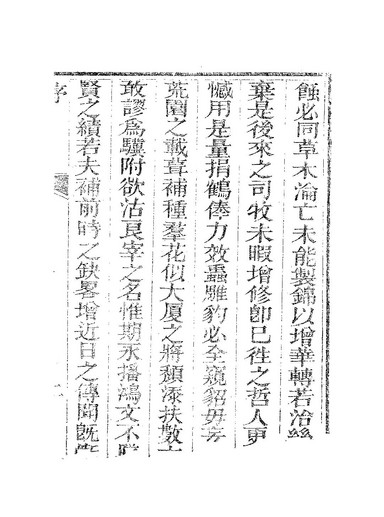 蝕必同草木淪亡未能製錦以增華轉若治絲
棄是後來之司牧未暇增修卽已徃之哲人更
憾用是量捐鶴俸力效蟲雕豹必全窺貂毋
荒園之戢葺補種羣花似大厦之將頽添扶數
敢謬爲驥附欲沽良宰之名惟期永播鴻文不
賢之績若夫補前時之缺畧增近日之傳聞旣
序